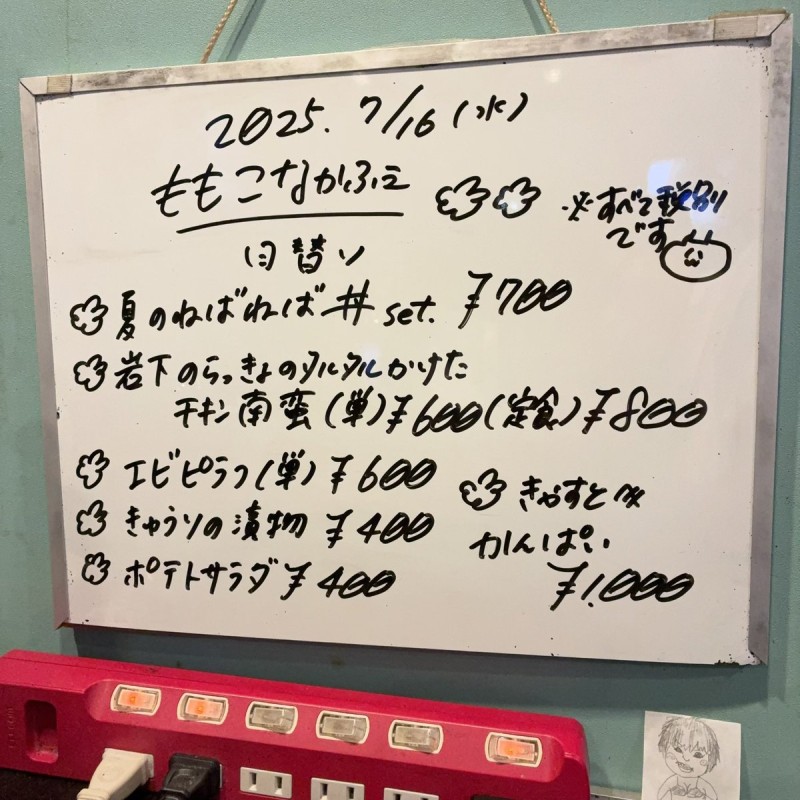 2025. 7/16 (水)
ももこなかふぇ
※すべて税別
です
日替り
夏のねばねば丼 set. ¥700
岩下のらっきょのタルタルかけた
チキン南蛮(単)¥600(定食)¥800
エビピラフ(単)¥600
きゅうりの漬物 ¥400
ポテトサラダ ¥400
きゃすと
かんぱい
¥1,000